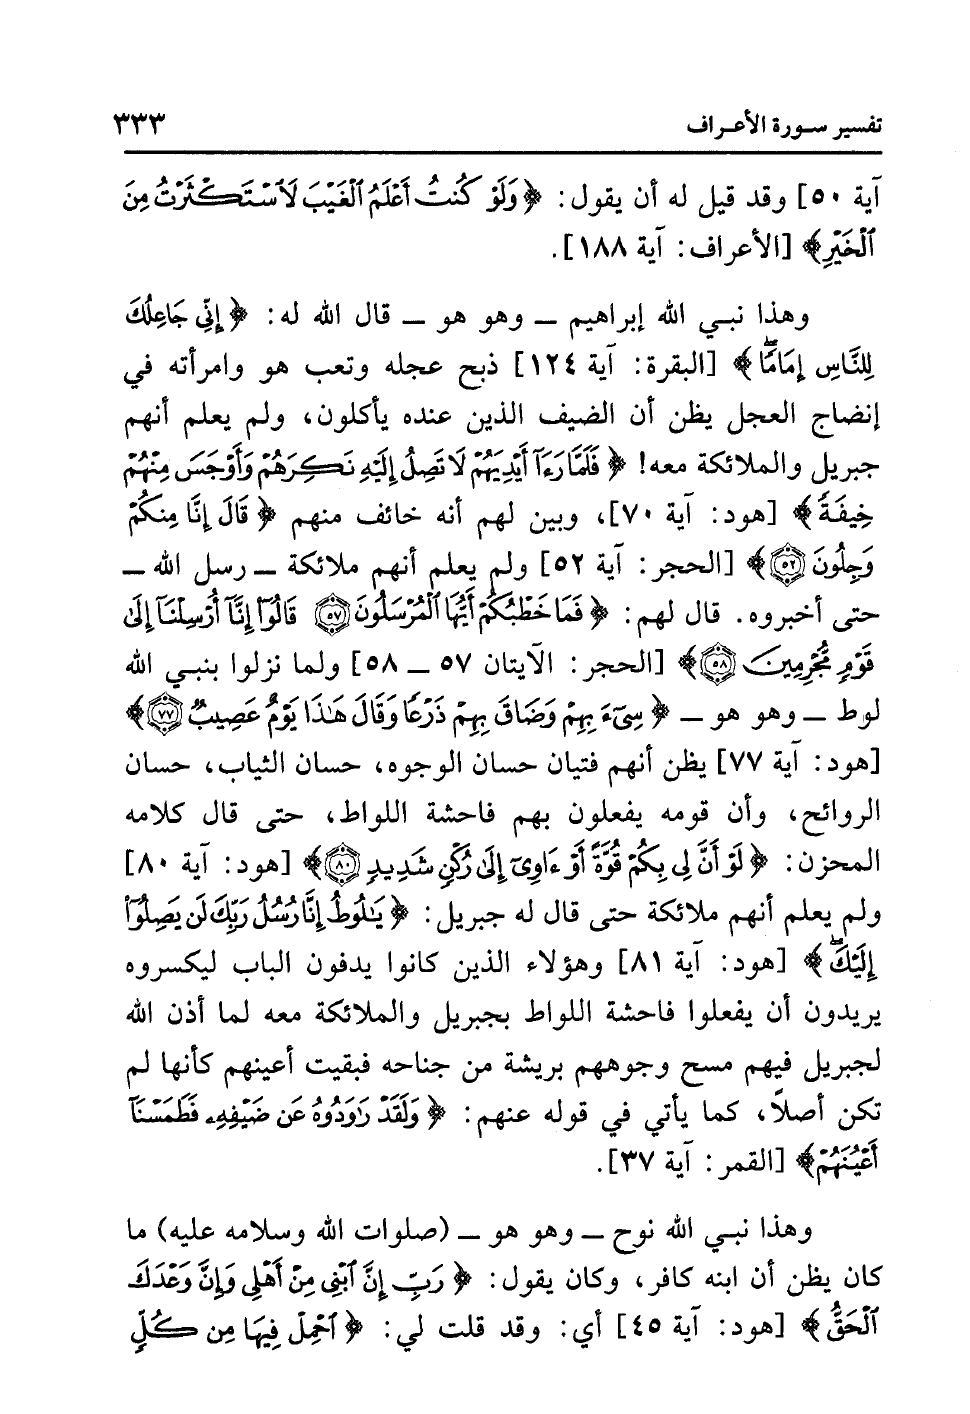 تفسير سورة الأعراف ٣٣٣
آية ٥٠] وقد قيل له أن يقول: ﴿وَلَوْ كُنتُ أَعْلَمُ ٱلْغَيْبَ لَٱسْتَكْثَرْتُ مِنَ
ٱلْخَيْرِ﴾ [الأعراف: آية ١٨٨].
وهذا نبي الله إبراهيم ــ وهو هو ــ قال الله له: ﴿إِنِّي جَاعِلُكَ
لِلنَّاسِ إِمَامًاۖ﴾ [البقرة: آية ١٢٤] ذبح عجله وتعب هو وامرأته في
إنضاج العجل يظن أن الضيف الذين عنده يأكلون، ولم يعلم أنهم
جبريل والملائكة معه! ﴿فَلَمَّا رَءَآ أَيْدِيَهُمْ لَا تَصِلُ إِلَيْهِ نَكِرَهُمْ وَأَوْجَسَ مِنْهُمْ
خِيفَةًۚ﴾ [هود: آية ٧٠]، وبين لهم أنه خائف منهم ﴿قَالَ إِنَّا مِنكُمْ
وَجِلُونَ ٥٢﴾ [الحجر: آية ٥٢] ولم يعلم أنهم ملائكة ــ رسل الله ــ
حتى أخبروه. قال لهم: ﴿فَمَا خَطْبُكُمْ أَيُّهَا ٱلْمُرْسَلُونَ ٥٧ قَالُوٓا۟ إِنَّآ أُرْسِلْنَآ إِلَىٰ
قَوْمٍ مُّجْرِمِينَ ٥٨﴾ [الحجر: الآيتان ٥٧ ــ ٥٨] ولما نزلوا بنبي الله
لوط ــ وهو هو ــ ﴿سِىٓءَ بِهِمْ وَضَاقَ بِهِمْ ذَرْعًا وَقَالَ هَٰذَا يَوْمٌ عَصِيبٌ ٧٧﴾
[هود: آية ٧٧] يظن أنهم فتيان حسان الوجوه، حسان الثياب، حسان
الروائح، وأن قومه يفعلون بهم فاحشة اللواط، حتى قال كلامه
المحزن: ﴿لَوْ أَنَّ لِى بِكُمْ قُوَّةً أَوْ ءَاوِىٓ إِلَىٰ رُكْنٍ شَدِيدٍ ٨٠﴾ [هود: آية ٨٠]
ولم يعلم أنهم ملائكة حتى قال له جبريل: ﴿يَٰلُوطُ إِنَّا رُسُلُ رَبِّكَ لَن يَصِلُوٓا۟
إِلَيْكَۖ﴾ [هود: آية ٨١] وهؤلاء الذين كانوا يدفون الباب ليكسروه
يريدون أن يفعلوا فاحشة اللواط بجبريل والملائكة معه لما أذن الله
لجبريل فيهم مسح وجوههم بريشة من جناحه فبقيت أعينهم كأنها لم
تكن أصلاً، كما يأتي في قوله عنهم: ﴿وَلَقَدْ رَٰوَدُوهُ عَن ضَيْفِهِۦ فَطَمَسْنَآ
أَعْيُنَهُمْ﴾ [القمر: آية ٣٧].
وهذا نبي الله نوح ــ وهو هو ــ (صلوات الله وسلامه عليه) ما
كان يظن أن ابنه كافر، وكان يقول: ﴿رَبِّ إِنَّ ٱبْنِى مِنْ أَهْلِى وَإِنَّ وَعْدَكَ
ٱلْحَقُّ﴾ [هود: آية ٤٥] أي: وقد قلت لي: ﴿ٱحْمِلْ فِيهَا مِن كُلٍّ